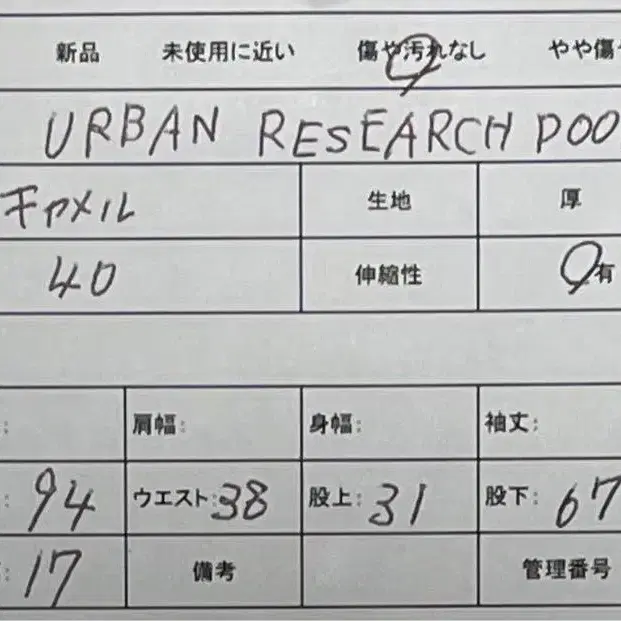 新品 未使用に近い 傷や汚れなし やや傷
URBAN RESEARCH DOO
キャメル 生地 厚
40 伸縮性 有
: 肩幅: 身幅: 袖丈:
: 94 ウエスト: 38 股上: 31 股下: 67
: 17 備考 管理番号